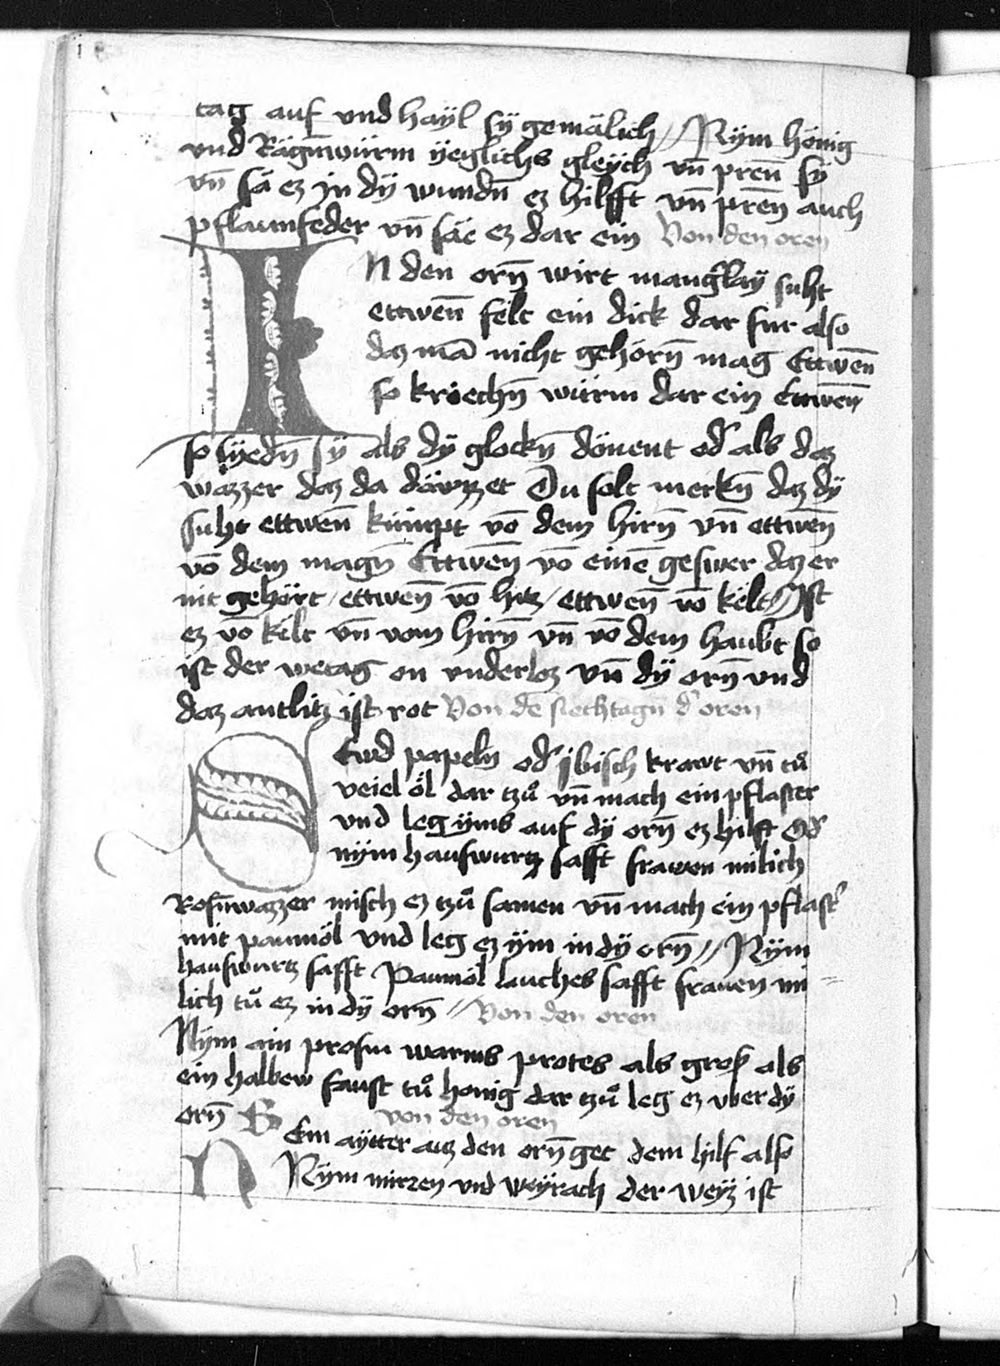 tag auf vnd hayl sÿ gemälich // Nÿm hönig
vnd Rägn̄würm ÿeglichs gleÿch vn̄ pren̄ sÿ
vn̄ sä ez jn dÿ wundn̄ ez hilfft vn̄ pren̄ auch
pflaumfeder vn̄ säe ez dar ein Von den oren
IN den orn̄ wirt mangͬlaÿ suht
ettwen̄ felt ein dick dar fur also
daz mā nicht gehörn̄ mag Ettwen̄
so kriechn̄ würm dar ein Ettwen̄
so sÿedn̄ sÿ als dÿ glockn̄ dönent odͬ als daz
wazzer daz da düzzet Du solt merkn̄ daz dÿ
suht ettwen̄ kümpt vō dem hirn̄ vn̄ ettwen̄
vō dem magn̄ Ettwen̄ vō einē geswer daz er
nit gehört / ettwen̄ vō hitz / ettwen̄ vō kelt // Ist
ez vō kelt vn̄ vom hirn̄ vn̄ vō dem haubt so
ist der wetag on vnderloz vn̄ dÿ orn̄ vnd
daz antlitz ist rot Von dē siechtagn̄ dͬ oren
SEwd papeln odͬ ÿbisch krawt vn̄ tuͦ
veiel öl dar tzuͦ vn̄ mach ein pflaster
vnd leg ÿms auf dÿ orn̄ ez hilft Odͬ
nÿm hauswurtz safft frawen milich
Rosn̄wazzer misch ez tzuͦ samen vn̄ mach ein pflastͬ
mit paumöl vnd leg ez ÿm in dÿ orn̄ // Nÿm
hauswurtz safft Paumöl lauches safft frauen mi=
lich tuͦ ez in dÿ orn̄ // Von den oren
Nÿm ain prosm warms protes als gros als
ein halbew faust tuͦ honig dar tzuͦ leg ez vber dÿ
orn̄ von den oren
Em aÿtter auz den orn̄ get dem hilf also
Nÿm mirren vnd weÿrach der weÿz ist